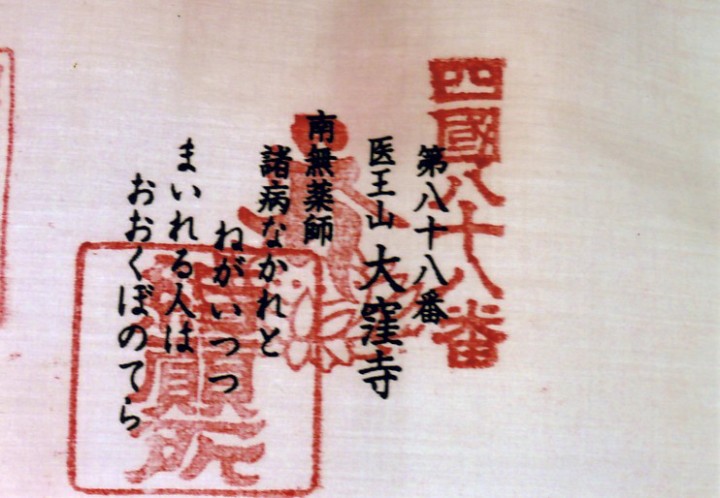 四國八十八番
第八十八番
医王山 大窪寺
南無薬師
諸病なかれと
ねがいつつ
まいれる人は
おおくぼのてら